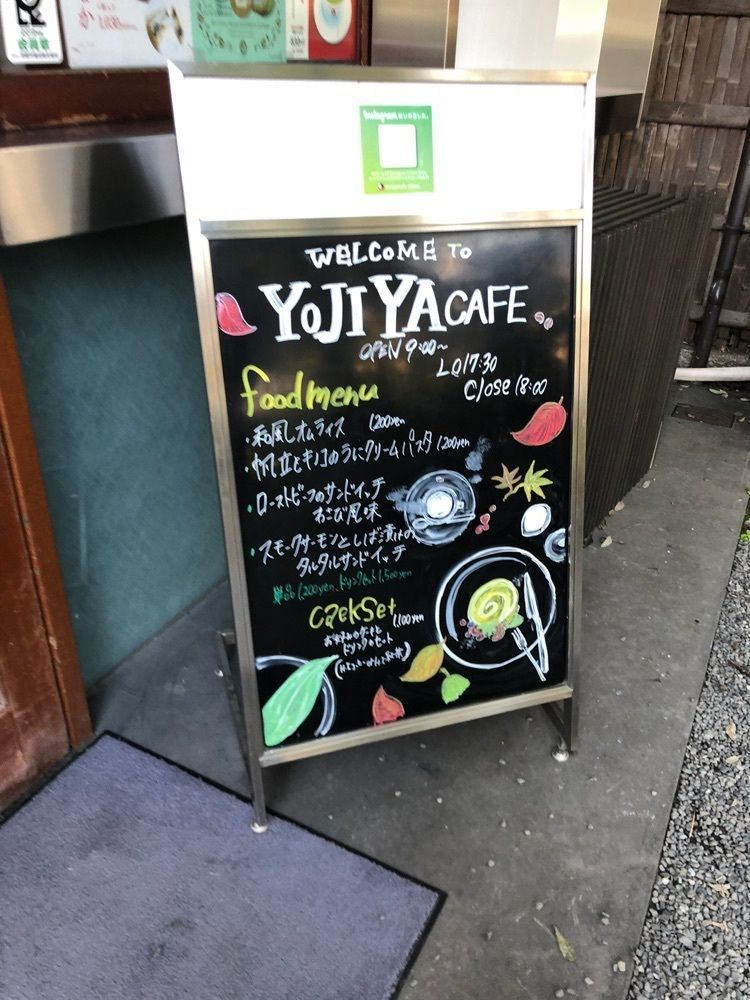 WELCOME TO
YOJIYA CAFE
OPEN 9:00~
LO 17:30
Close 18:00
food menu
・和風オムライス 1,200yen
・帆立とキノコのうにクリームパスタ 1,200yen
・ローストビーフのサンドイッチ
わさび風味
・スモークサーモンとしば漬けの
タルタルサンドイッチ
単品 1,200yen、ドリンクセット 1,500yen
CaekSet 1,100yen
お好みのケーキと
ドリンクのセット